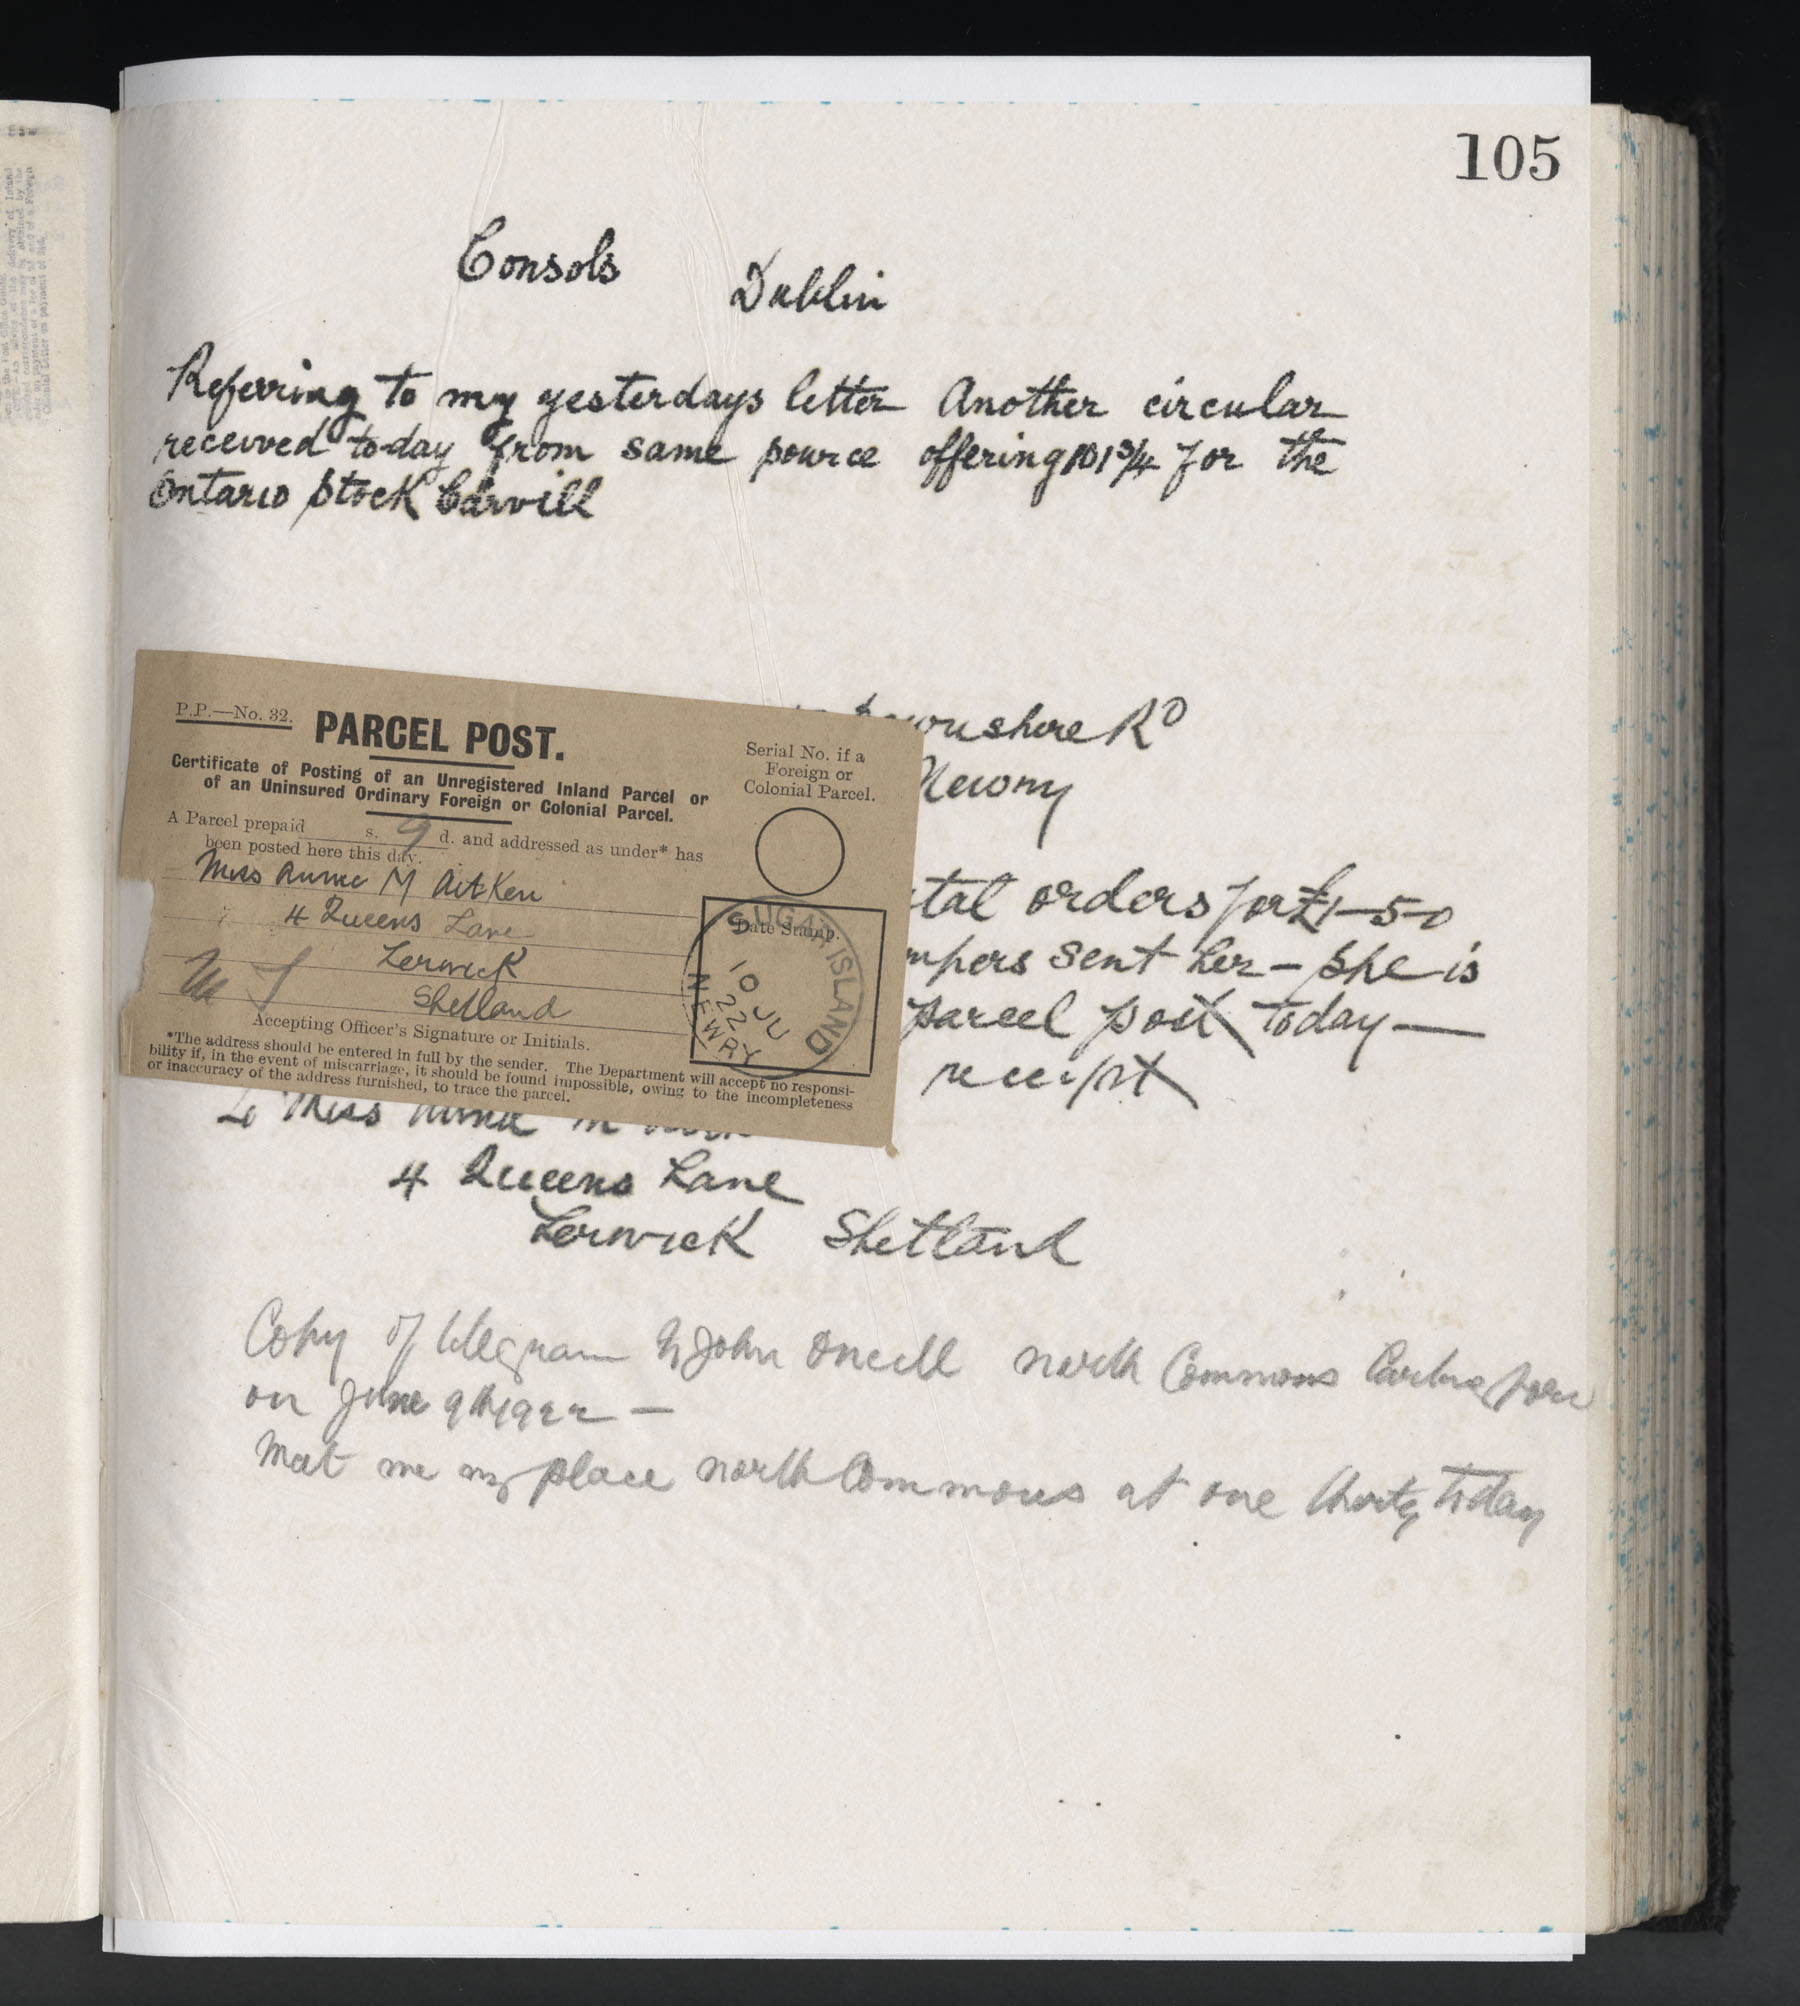 105
Consols
Dublin
Referring to my yesterdays letter Another circular
received to-day from same source offering 101 3/4 for the
Ontario Stock Carvill
onshire RD
Newry
tal orders for £1-5-0
mpers sent her - She is
parcel post today —
receipt
P.P.—No. 32.
PARCEL POST.
Certificate of Posting of an Unregistered Inland Parcel or
of an Uninsured Ordinary Foreign or Colonial Parcel.
Serial No. if a
Foreign or
Colonial Parcel.
A Parcel prepaid s. 9 d. and addressed as under* has
been posted here this day.
Miss Annie M Aitken
4 Queens Lane
Lerwick
Shetland
Date Stamp.
SUGAR ISLAND
10 JU
22
NEWRY
Accepting Officer's Signature or Initials.
*The address should be entered in full by the sender. The Department will accept no responsi-
bility if, in the event of miscarriage, it should be found impossible, owing to the incompleteness
or inaccuracy of the address furnished, to trace the parcel.
To Miss Annie M
4 Queens Lane
Lerwick Shetland
Copy of telegram to John Oneill north Commons
on June 9th 1922 —
Meet me my place north Commons at one thirty today